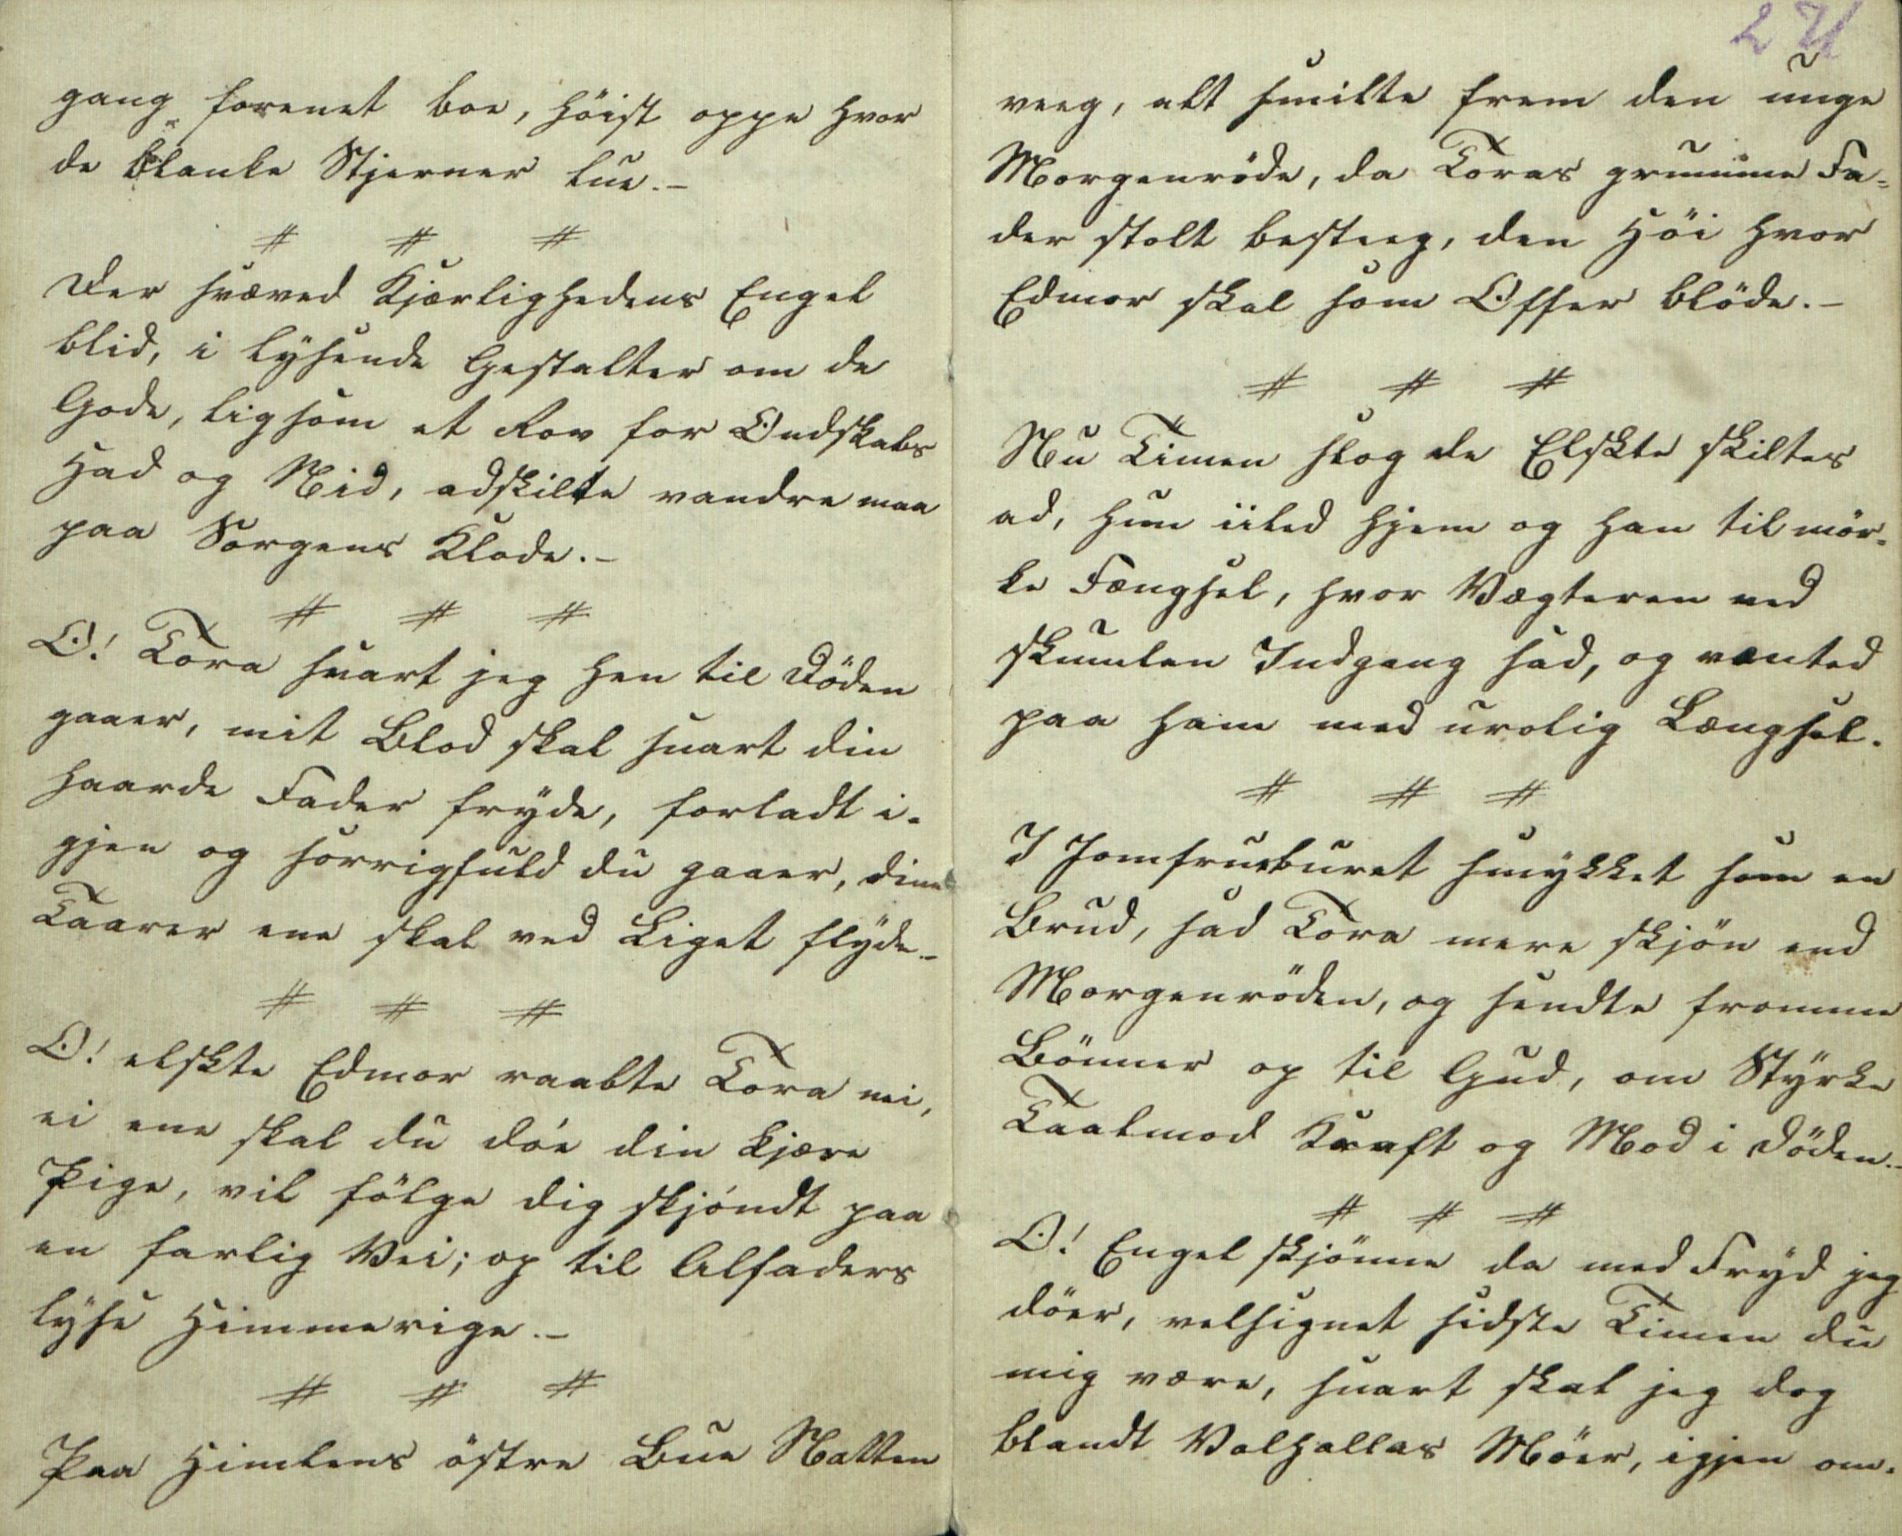 gang forenet boe, höist oppe hvor
de blanke Stjerner lue.-
# # #
Der svæved Kjærlighedens Engel
blid, i lysende Gestalter om de
Gode, ligsom et Rov for Ondskabs
Had og Nid, adskilte vandre maa
paa Sorgens Klode.-
# # #
O! Tora snart jeg hen til Döden
gaaer, mit Blod skal snart din
haarde Fader fryde, forladt i-
gjen og sorrigfuld du gaaer, dine
Taarer ene skal ved Liget flyde.-
# # #
O! elskte Edmor raabte Tora nei,
ei ene skal du döe din kjære
Pige, vil fölge dig skjöndt paa
en farlig Vei; op til Alfaders
lyse Himmerige.-
# # #
Paa Himlens östre Bue Natten
24
veeg, alt smilte frem den unge
Morgenröde, da Toras grumme Fa-
der stolt besteeg, den Höi hvor
Edmor skal som Offer blöde.-
# # #
Nu Timen slog de Elskte skiltes
ad, hun iiled hjem og han til mör-
ke Fængsel, hvor Vægteren ved
skumlen Indgang sad, og vænted
paa ham med urolig Længsel.
# # #
I Jomfrueburet smykket som en
Brud, sad Tora mere skjön end
Morgenröden, og sendte fromme
Bönner op til Gud, om Styrke
Taalmod Kraft og Mod i Döden.-
# # #
O! Engel skjönne da med Fryd jeg
döer, velsignet sidste Timen du
mig være, snart skal jeg dog
blandt Valhallas Möer, igjen om-